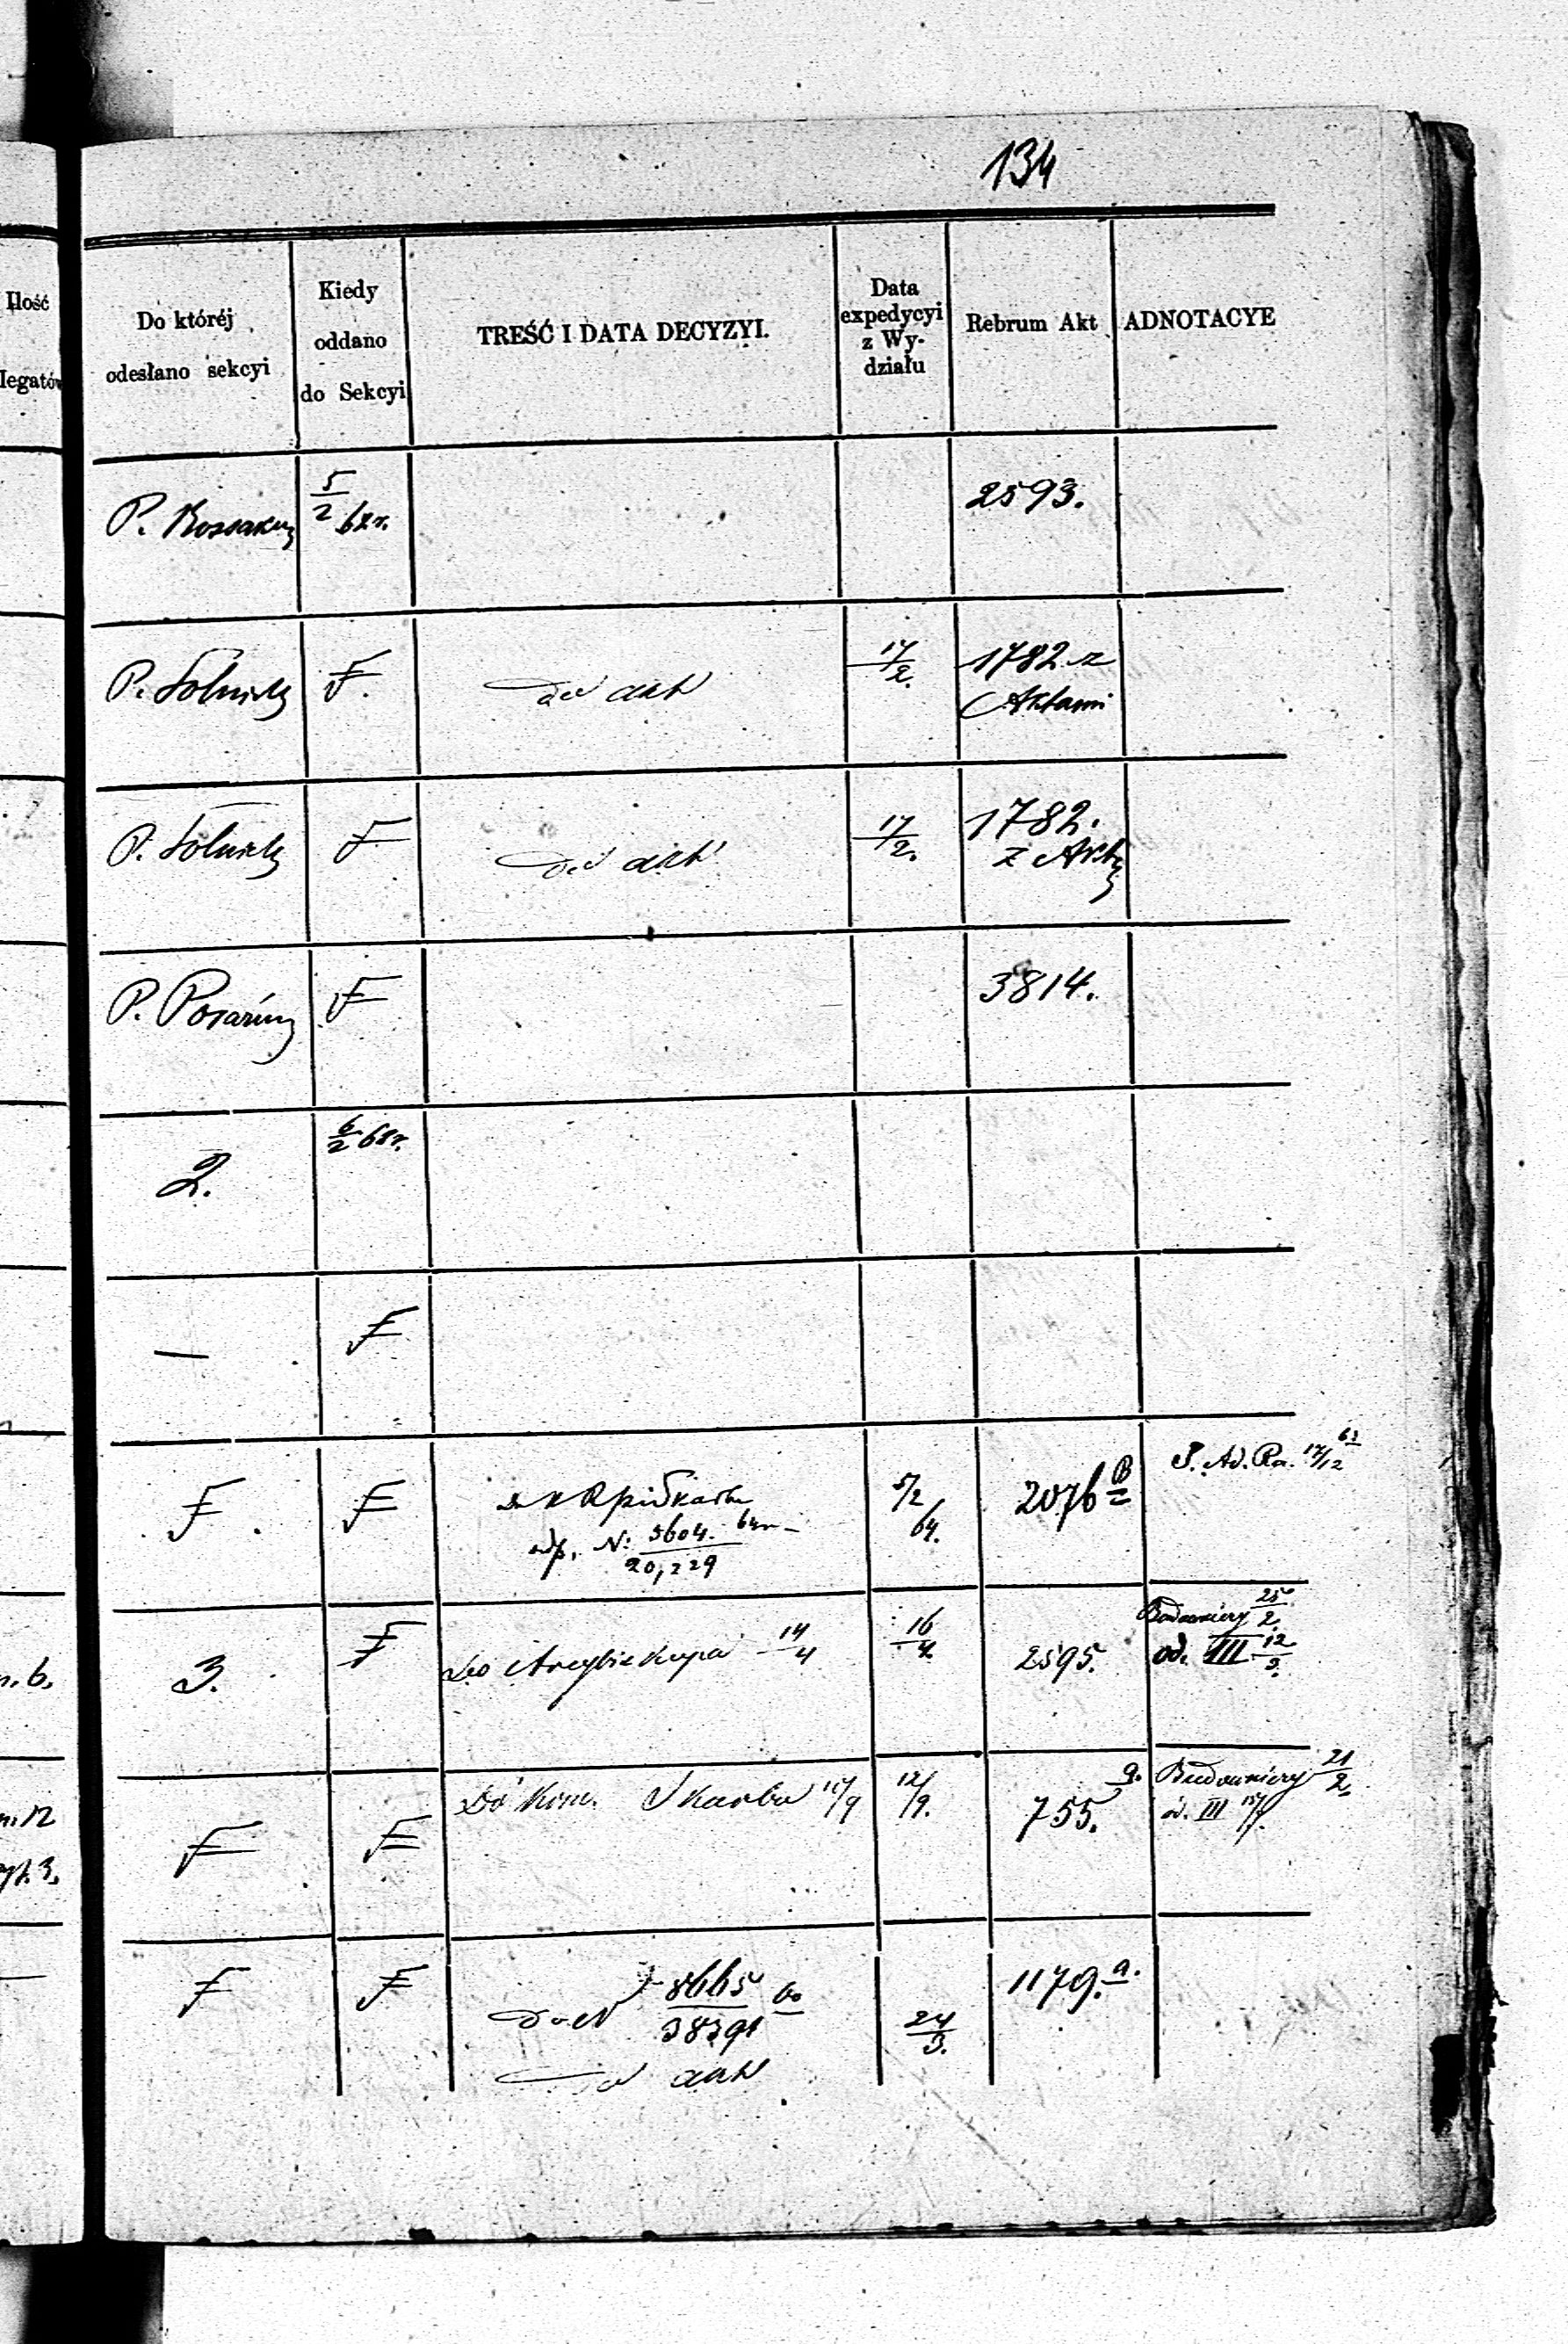 134
Ilość
legatów
Do któréj
odesłano sekcyi
Kiedy
oddano
do Sekcyi
TREŚĆ I DATA DECYZYI.
Data
expedycyi
z Wy-
działu
Rebrum Akt
ADNOTACYE
P.
5/2 62 r.
2593.
P. Solnicki
F.
do akt
17/2.
1782 z
Aktami
P. Solnicki
F
do akt
17/2.
1782.
z Akty
P.
F
3814.
2.
6/2 62 r.
—
F
F.
F
Nr 5604. 64 r
20,229
5/2
64.
2076 B
17/12 63
n. 6.
3.
F
Do Arcybiskupa 14/4
16/4
2595.
Budowniczy 25/2.
od. III 12/3.
n. 12
F
F
Do Kom. Skarbu 11/9
12/9.
755. a.
Budowniczy 21/2.
od. III
F
F
do N 8665
38391
do akt
24/3.
1179. a.